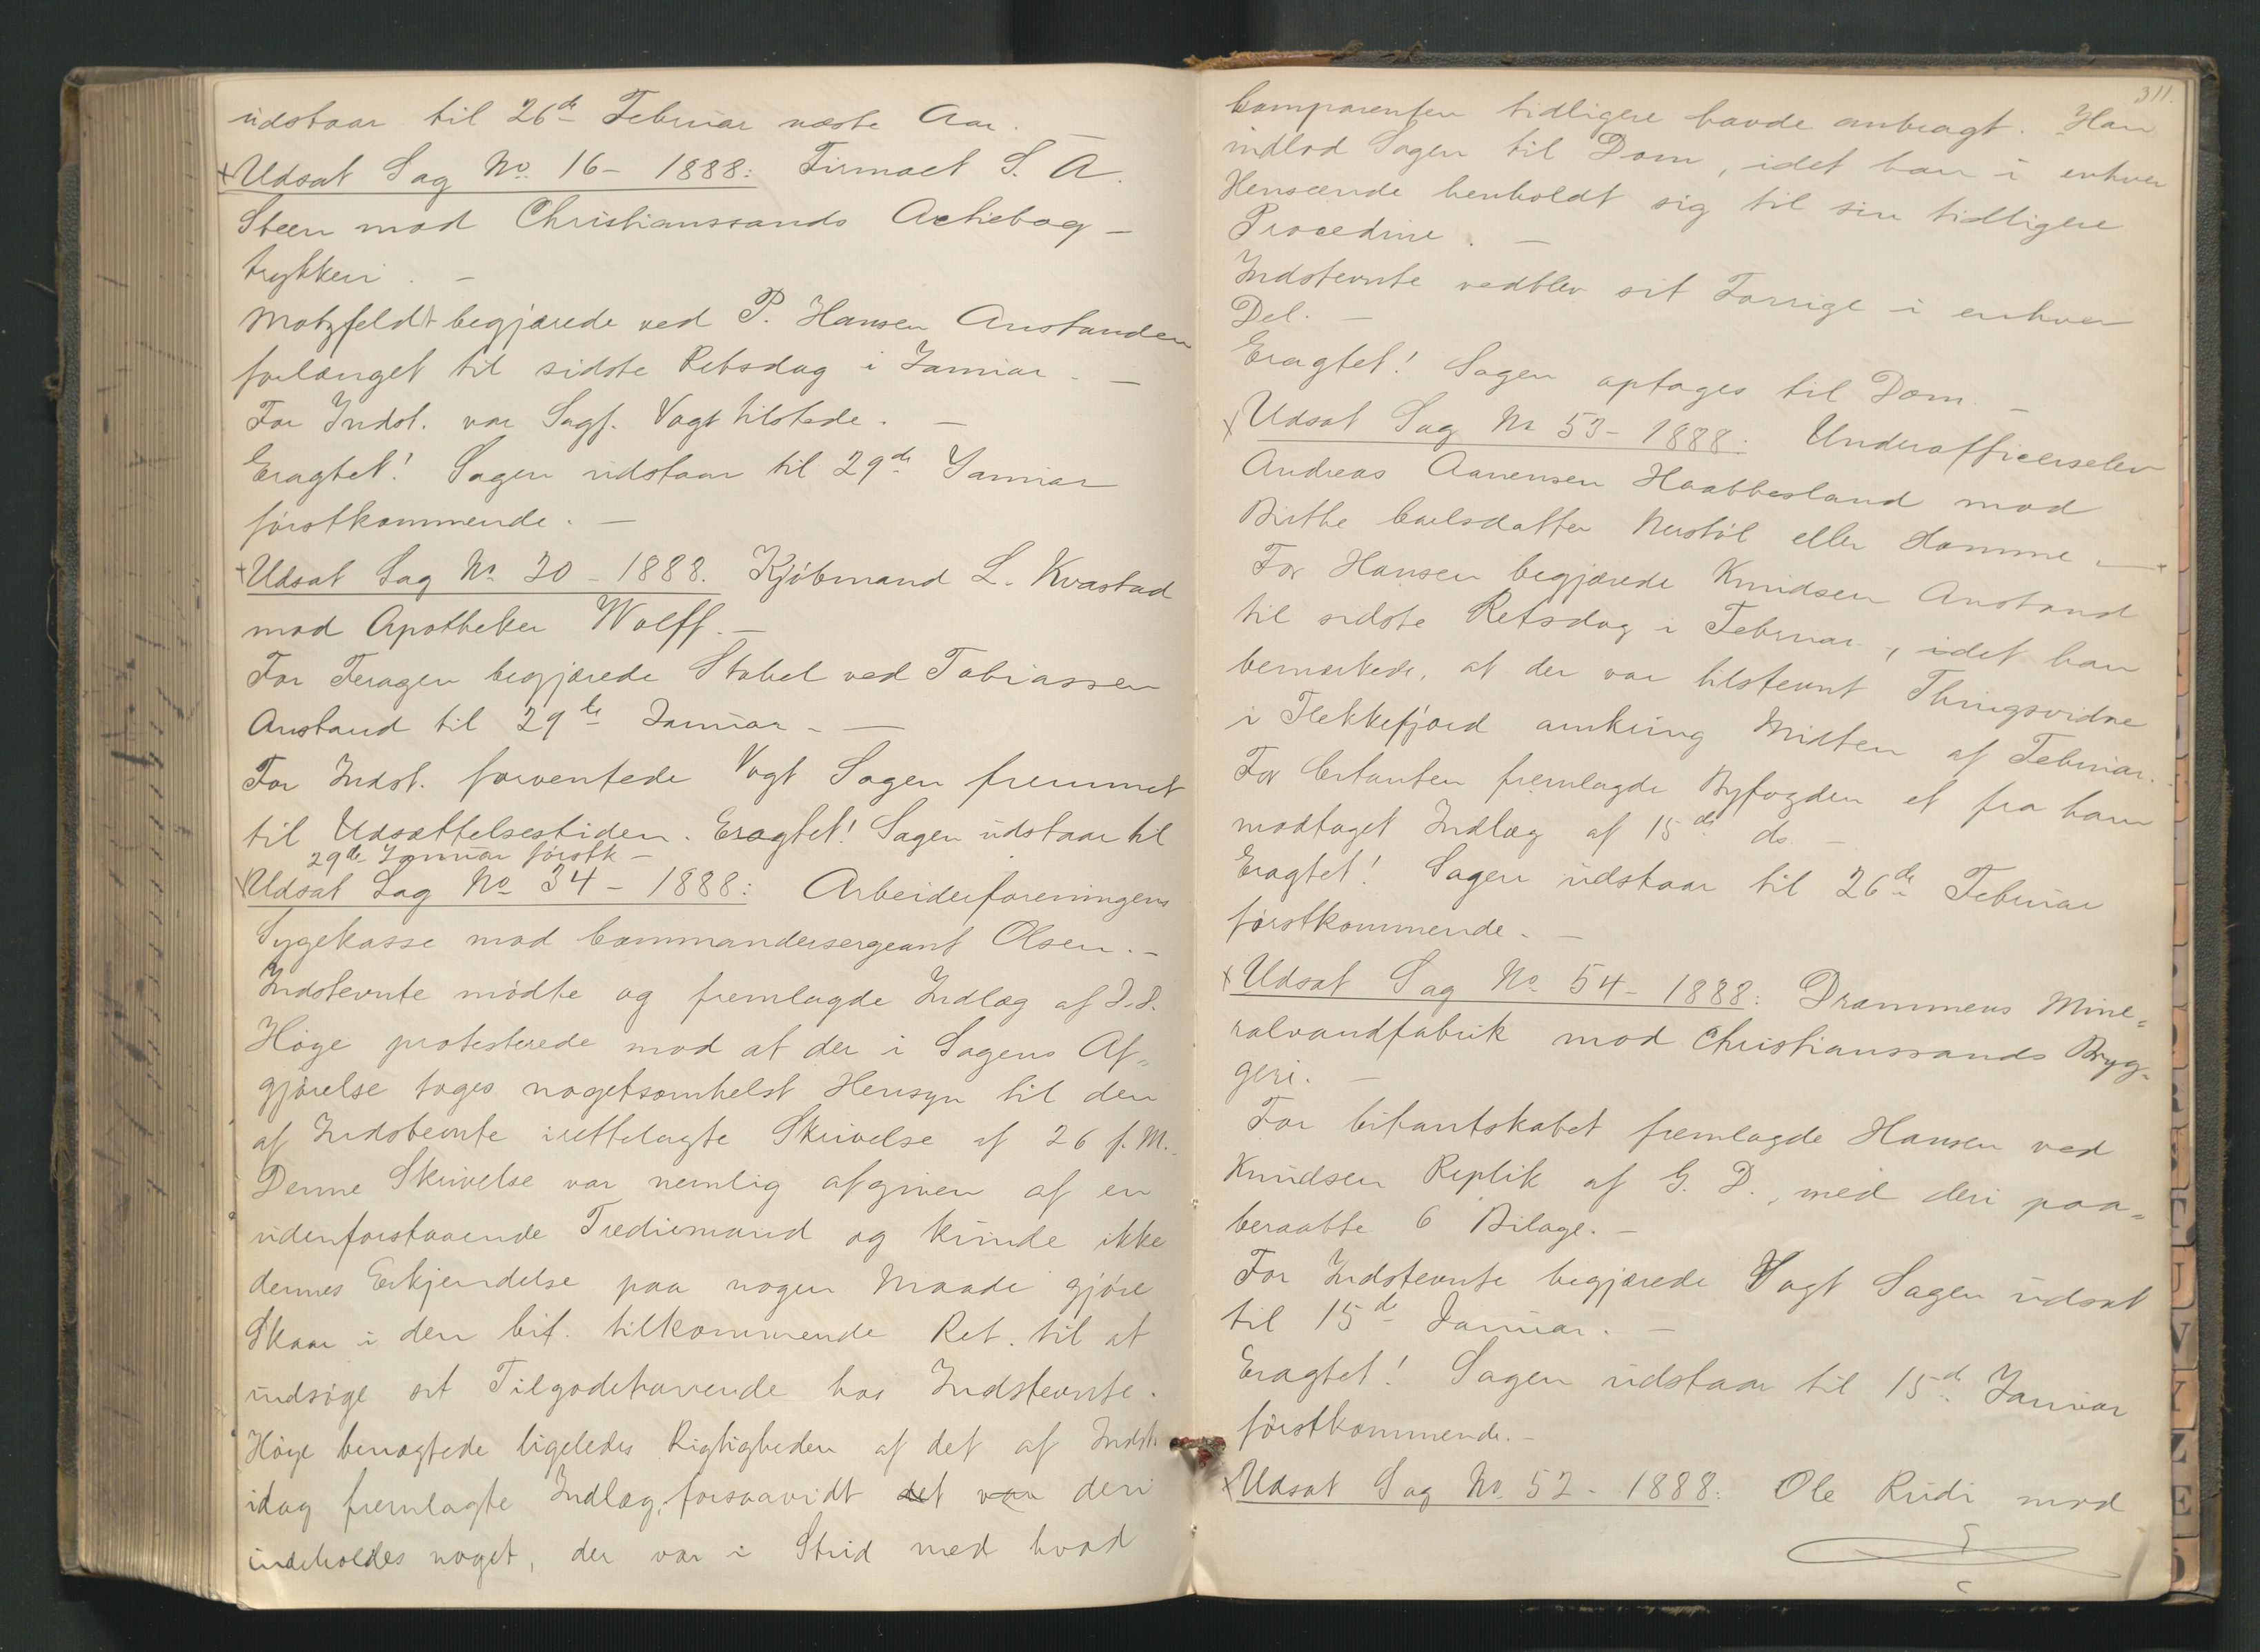 udstaar til 26de Februar næste Aar. —
Udsat Sag No. 16 - 1888: Firmaet S. A.
Steen mod Christianssands Actiebog-
trykkeri. —
Motzfeldt begjærede ved P. Hansen Anstanden
forlænget til sidste Retsdag i Januar. —
For Indst. var Sagf. Vogt tilstede. —
Eragtet! Sagen udstaar til 29de Januar
førstkommende. —
Udsat Sag No 20 - 1888. Kjøbmand L. Kvastad
mod Apotheker Wolff. —
For Feragen begjærede Stabel ved Tobiassen
Anstand til 29de Januar. —
For Indst. forventede Vogt Sagen fremmet
til Udsættelsestiden. Eragtet! Sagen udstaar til
29de Januar førstk —
Udsat Sag No 34 - 1888: Arbeiderforeningens
Sygekasse mod Commandersergeant Olsen. —
Indstevnte mødte og fremlagde Indlæg af I. D.
Høge protesterede mod at der i Sagens Af-
gjørelse toges nogetsomhelst Hensyn til den
af Indstevnte irettelagte Skrivelse af 26 f. M.
Denne Skrivelse var nemlig afgiven af en
udenforstaaende Trediemand og kunde ikke
dennes Erkjendelse paa nogen Maade gjøre
Skaar i den Cit. tilkommende Ret til at
indsøge sit Tilgodehavende hos Indstevnte.
Høge benægtede ligeledes Rigtigheden af det af Indst.
idag fremlagte Indlæg, forsaavidt det var deri
indeholdes noget, der var i Strid med hvad
311.
Comparenten tidligere havde anbragt. Han
indlod Sagen til Dom, idet han i enhver
Henseende henholdt sig til sin tidligere
Procedure. —
Indstevnte vedblev sit Forrige i enhver
Del. —
Eragtet! Sagen optages til Dom. —
Udsat Sag No 53 - 1888: Underofficerselev
Andreas Aanensen Haabbesland mod
Birthe Carlsdatter Nerstøl eller Homme. —
For Hansen begjærede Knudsen Anstand
til sidste Retsdag i Februar, idet han
bemærkede, at der var tilstevnt Thingsvidne
i Flekkefjord omkring Midten af Februar.
For Citanten fremlagde Byfogden et fra ham
modtaget Indlæg af 15de ds. —
Eragtet! Sagen udstaar til 26de Februar
førstkommende. —
Udsat Sag No 54 - 1888: Drammens Mine-
ralvandfabrik mod Christianssands Bryg-
geri. —
For Citantskabet fremlagde Hansen ved
Knudsen Replik af G. D., med deri paa-
beraabte 6 Bilage. —
For Indstevnte begjærede Vogt Sagen udsat
til 15de Januar. —
Eragtet! Sagen udstaar til 15de Januar
førstkommende. —
Udsat Sag No. 52 - 1888: Ole Rudi mod